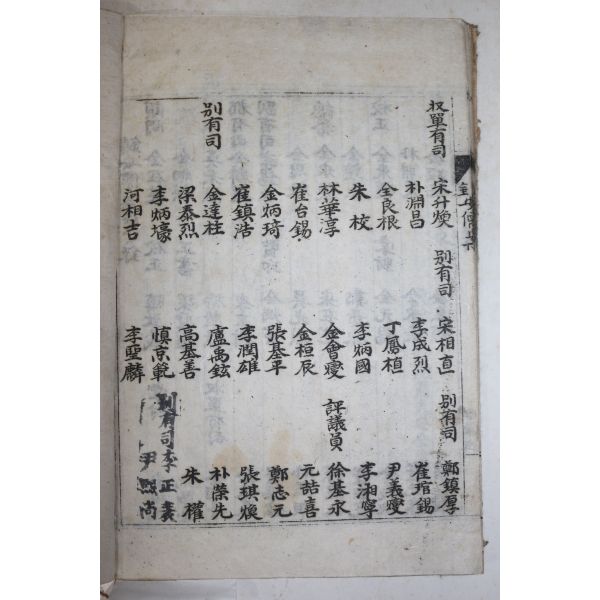 収單有司 宋升煥 別有司 宋相直 別有司 鄭鎭厚
朴淵昌 李成烈 崔琯錫
金良根 丁鳳植 尹義燮
朱校 李炳國 李湘寧
林華淳 金會燮 評議員 徐基永
崔台錫 金桓辰 元喆喜
金炳琦 張基平 鄭志元
崔鎭浩 李潤雄 張琪煥
別有司 金達柱 盧禹鉉 朴榮先
梁泰烈 高基善 朱權
李炳壕 愼京範 別有司 李正義
河相吉 李聖麟 尹 尚